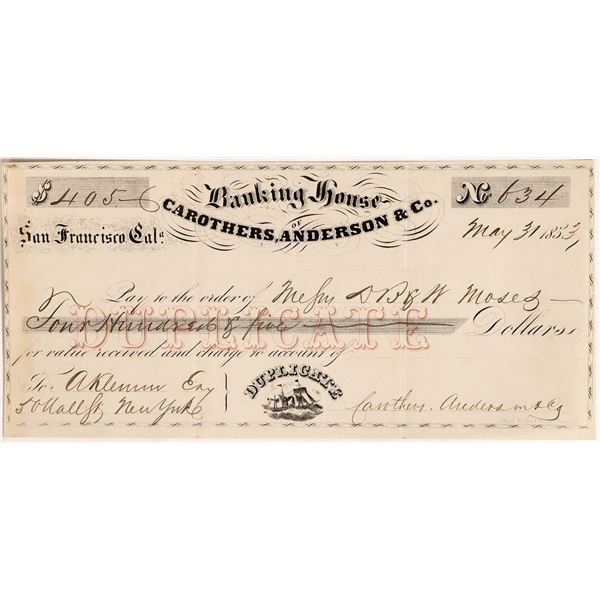 $ 405- Banking House No 634
OF
CAROTHERS, ANDERSON & Co.
San Francisco Cala. May 31 1853
Pay to the order of Messrs D B & W Moses
Four Hundred & five Dollars
DUPLICATE
for value received and charge to account of
To, A Klemm Esq DUPLICATE
50 Wall St New York Carothers, Anderson & Co